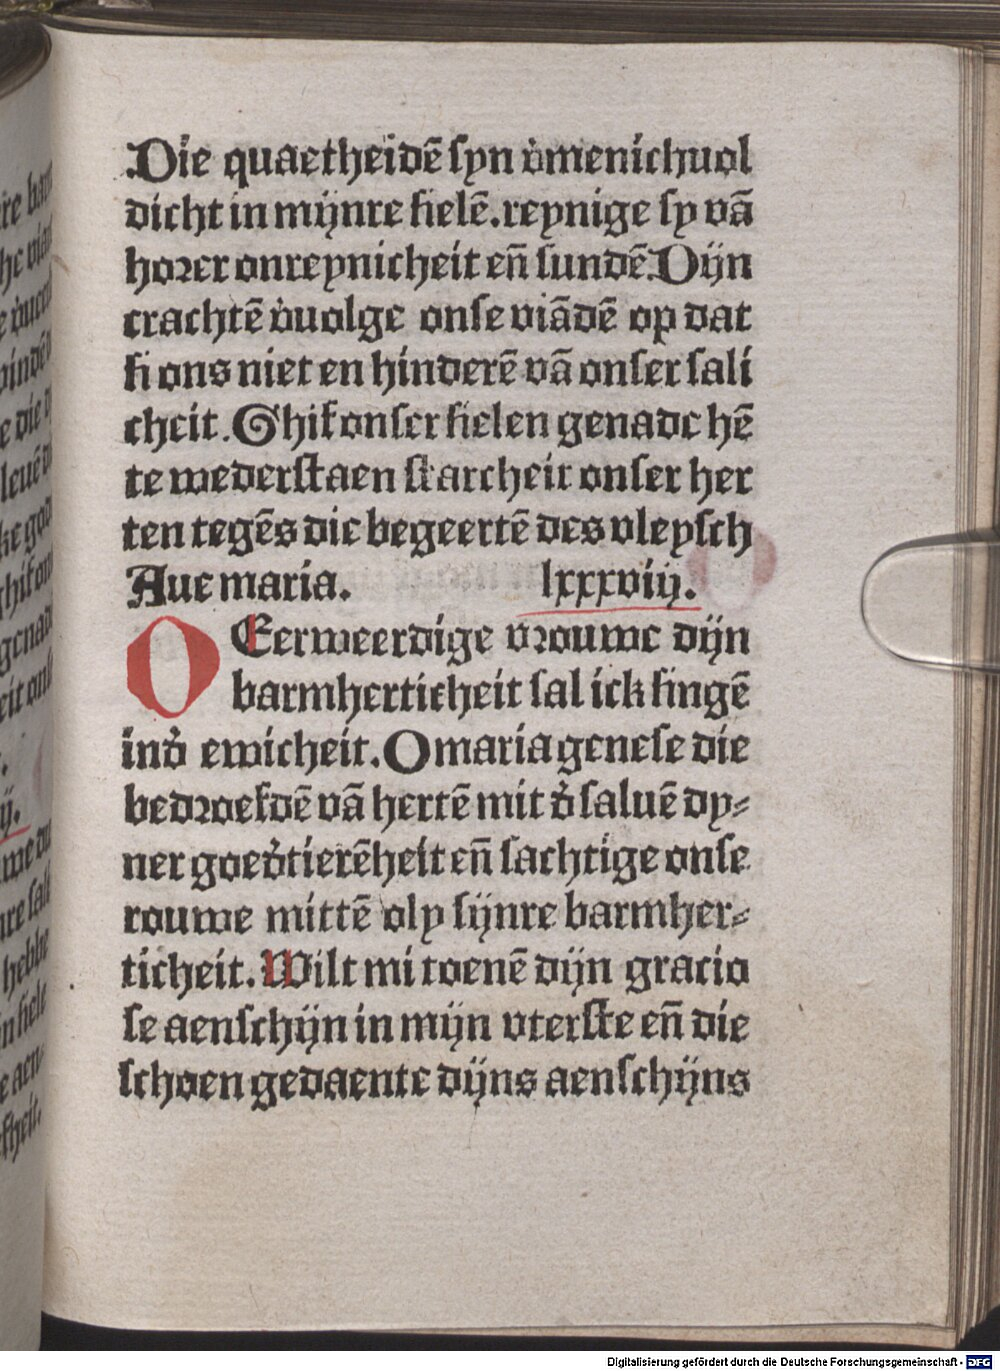 Die quaetheidē syn v̉menichuol
dicht in mijnre sielē. reynige sy vā
horer onreynicheit en̄ sundē. Dijn
crachtē v̉uolge onse viādē op dat
si ons niet en hinderē vā onser sali
cheit. Ghif onser sielen genade hē
te wederstaen starcheit onser her
ten tegēs die begeertē des vleysch
Aue maria. lxxxviij.
O Eerweerdige vrouwe dijn
barmherticheit sal ick singē
in d̉ ewicheit. O maria genese die
bedroefdē vā hertē mit d̉ saluē dy⸗
ner goed̉tierēheit en̄ sachtige onse
rouwe mittē oly sijnre barmher⸗
ticheit. Wilt mi toenē dijn gracio
se aenschijn in mijn vterste en̄ die
schoen gedaente dijns aenschijns
Digitalisierung gefördert durch die Deutsche Forschungsgemeinschaft - DFG